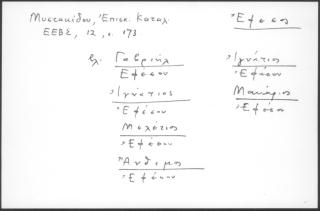 Μυστακίδου, Ἐπισκ. Καταλ.
Ἔφεσος
ΕΕΒΣ, 12, σ. 173
βλ. Γαβριήλ
Ἐφέσου
Ἰγνάτιος
Ἐφέσου
Μελέτιος
Ἐφέσου
Ἄνθιμος
Ἐφέσου
Ἰγνάτιος
Ἐφέσου
Μακάριος
Ἐφέσου